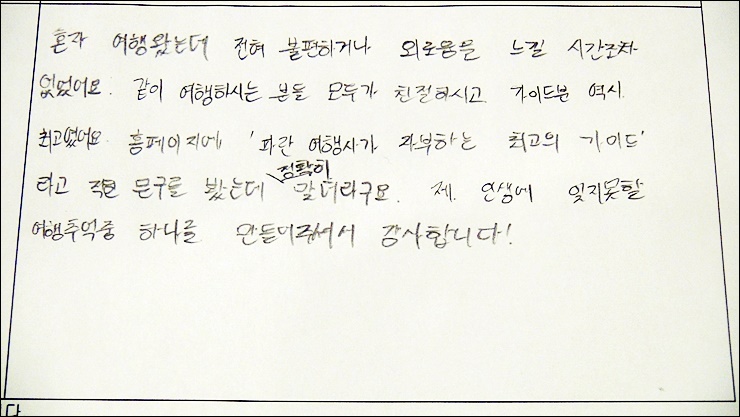 혼자 여행왔는데 전혀 불편하거나 외로움을 느낄 시간조차
없었어요. 같이 여행하시는 분들 모두가 친절하시고 가이드분 역시
최고였어요. 홈페이지에 '파란 여행사가 자부하는 최고의 가이드'
라고 적힌 문구를 봤는데 정확히 맞더라구요. 제 인생에 잊지못할
여행추억중 하나를 만들어주셔서 감사합니다!
다